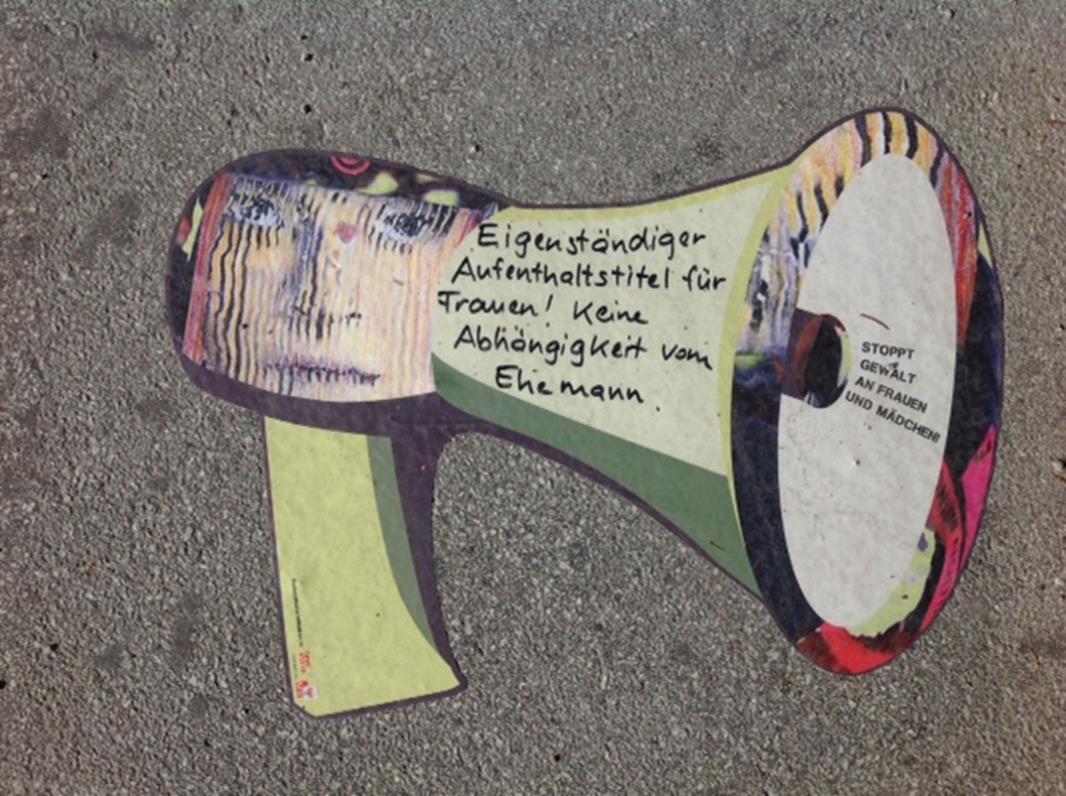 Eigenständiger
Aufenthaltstitel für
Frauen! Keine
Abhängigkeit vom
Ehemann.
STOPPT
GEWALT
AN FRAUEN
UND MÄDCHEN!